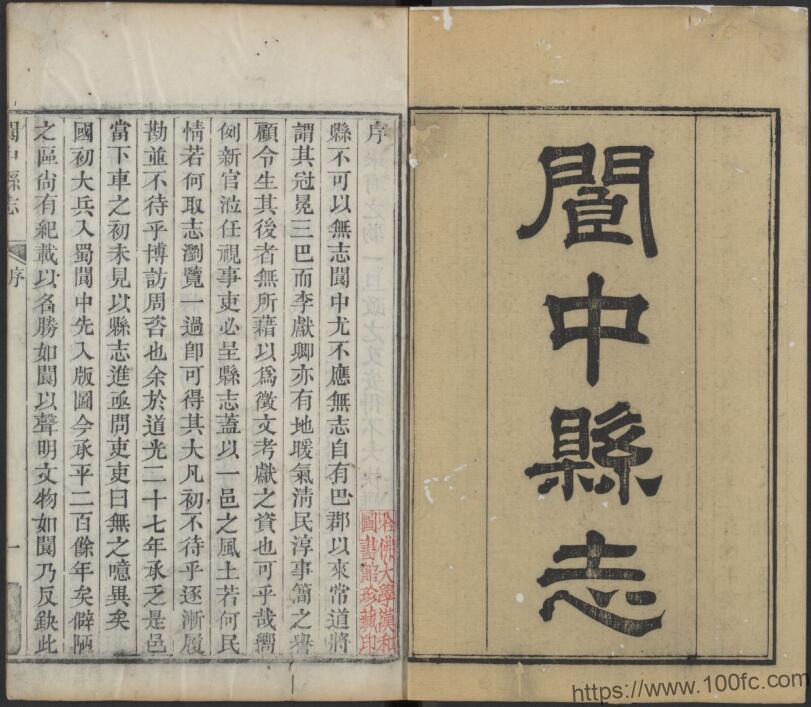 閬中縣志
序
縣不可以無志閬中尤不應無志自有巴郡以來常道將
謂其冠冕三巴而李獻卿亦有地暖氣淸民淳事簡之譽
顧令生其後者無所藉以爲徵文考獻之資也可乎哉嚮
例新官涖任視事吏必呈縣志蓋以一邑之風土若何民
情若何取志瀏覽一過卽可得其大凡初不待乎逐漸履
勘並不待乎博訪周咨也余於道光二十七年承乏是邑
當下車之初未見以縣志進亟問吏吏曰無之噫異矣
國初大兵入蜀閬中先入版圖今承平二百餘年矣僻陋
之區尙有紀載以名勝如閬以聲明文物如閬乃反缺此
閬中縣志
序
一
哈佛大學漢和
圖書館珍藏印
https://www.100fc.com